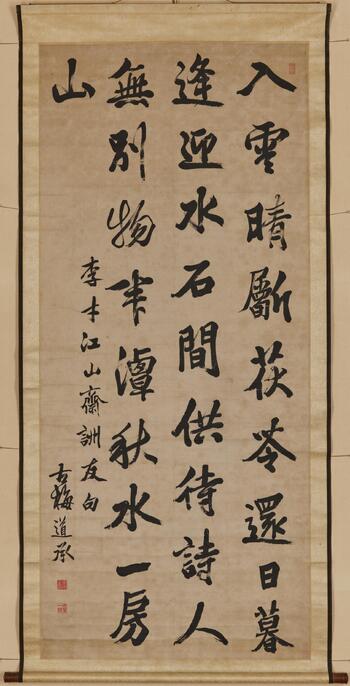 入雲晴斸茯苓還日暮
逢迎水石間供待詩人
無別物半潭秋水一房
山
李才江山齋詶友句
古梅道承